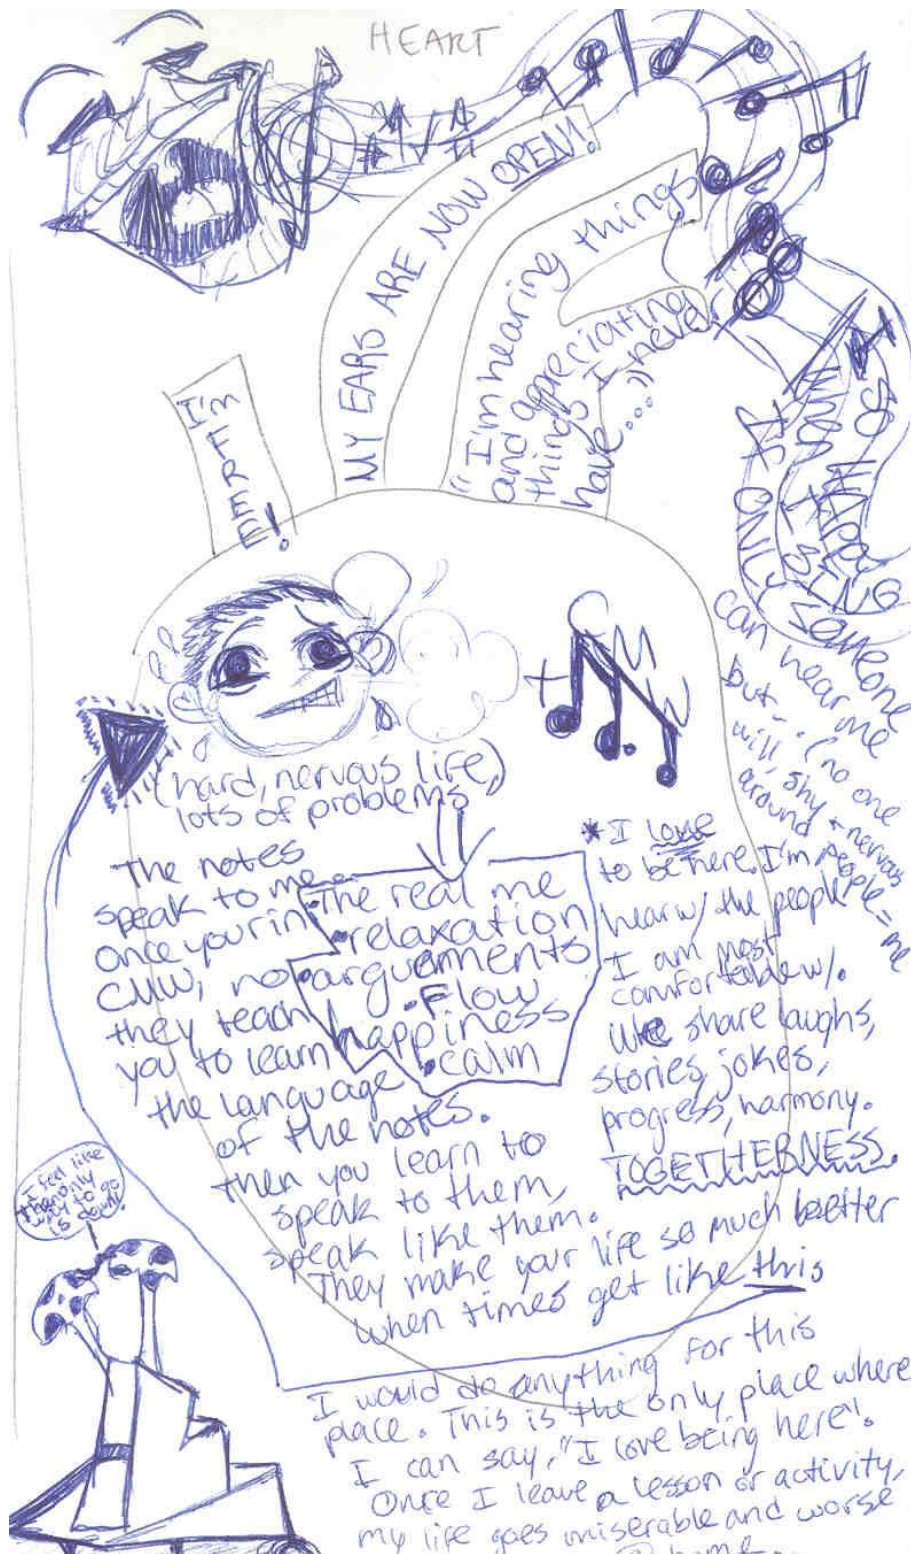 HEART
MY EARS ARE NOW OPEN!
"I'm hearing things
and appreciating
things I never
have..."
EMPTY!
SO HAPPY
WHEN I SING
IF ONLY someone
can hear me
but... (no one
will, shy + nervous
around people = me
CMW
(hard, nervous life,)
lots of problems
The real me
• relaxation
• no arguements
• Flow
• happiness
• calm
The notes
speak to me...
Once you're in
CMW,
they teach
you to learn
the language
of the notes.
Then you learn to
speak to them,
speak like them.
They make your life so much better
when times get like this
* I love
to be here. I'm
here w/ the people
I am most
comfortable w/.
We share laughs,
stories, jokes,
progress, harmony.
TOGETHERNESS.
I feel like
the only
way to go
is down!
I would do anything for this
place. This is the only place where
I can say, "I love being here".
Once I leave a lesson or activity,
my life goes miserable and worse
@ home